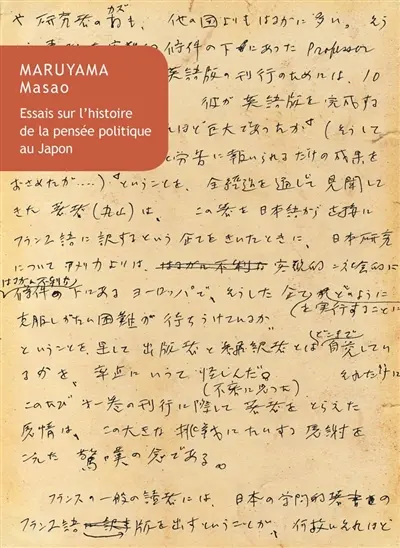 や研究者のカズも、他の国よりもはるかに多い。そう
条件の下にあった Professor
MARUYAMA
Masao
英語版の刊行のためには、10
彼が英語版を完成する
Essais sur l’histoire
de la pensée politique
au Japon
ほど巨大であったか（そうして
労苦に報いられるだけの成果を
おさめたが‥‥）ということを、全経過を通じて見聞して
きた著者（丸山）は、この書を日本語から直接に
フランス語に訳するという企てをきいたときに、日本研究
についてアメリカよりは、はるかに不利な 実際的
はるかに不利な
条件の下にあるヨーロッパで、そうした企て
を実行することに
克服しがたい困難が待ちうけているか
どこまで
ということを、果して出版者と翻訳者とは自覚してい
るかを、率直にいって怪しんだ。それだけに
このたび第一巻の刊行に際して著者をとらえた
感情は、この大きな挑戦にたいする感謝を
こえた驚嘆の念である。
フランスの一般の読者には、日本の学問的著書の
フランス語訳版を出すということが、何故いそれほど